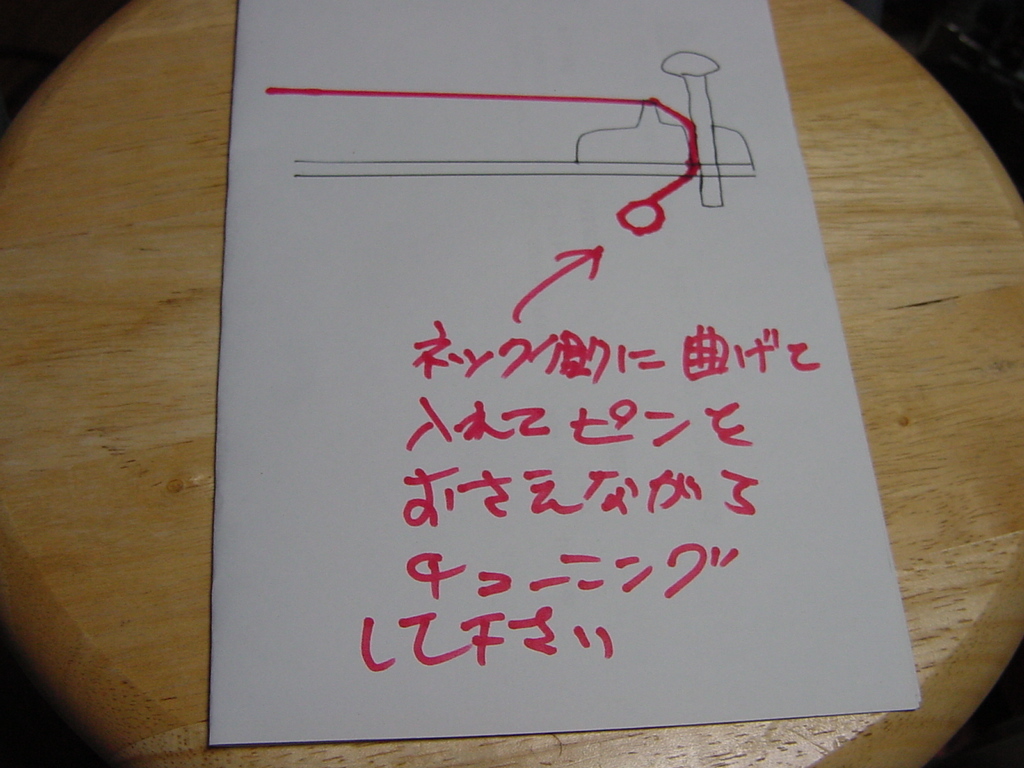 ネック側に曲げて
入れてピンを
おさえながら
チューニング
して下さい